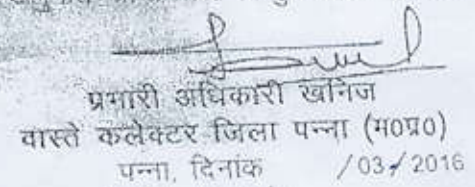 प्रभारी अधिकारी खनिज
वास्ते कलेक्टर जिला पन्ना (म0प्र0)
पन्ना, दिनांक /03/2016